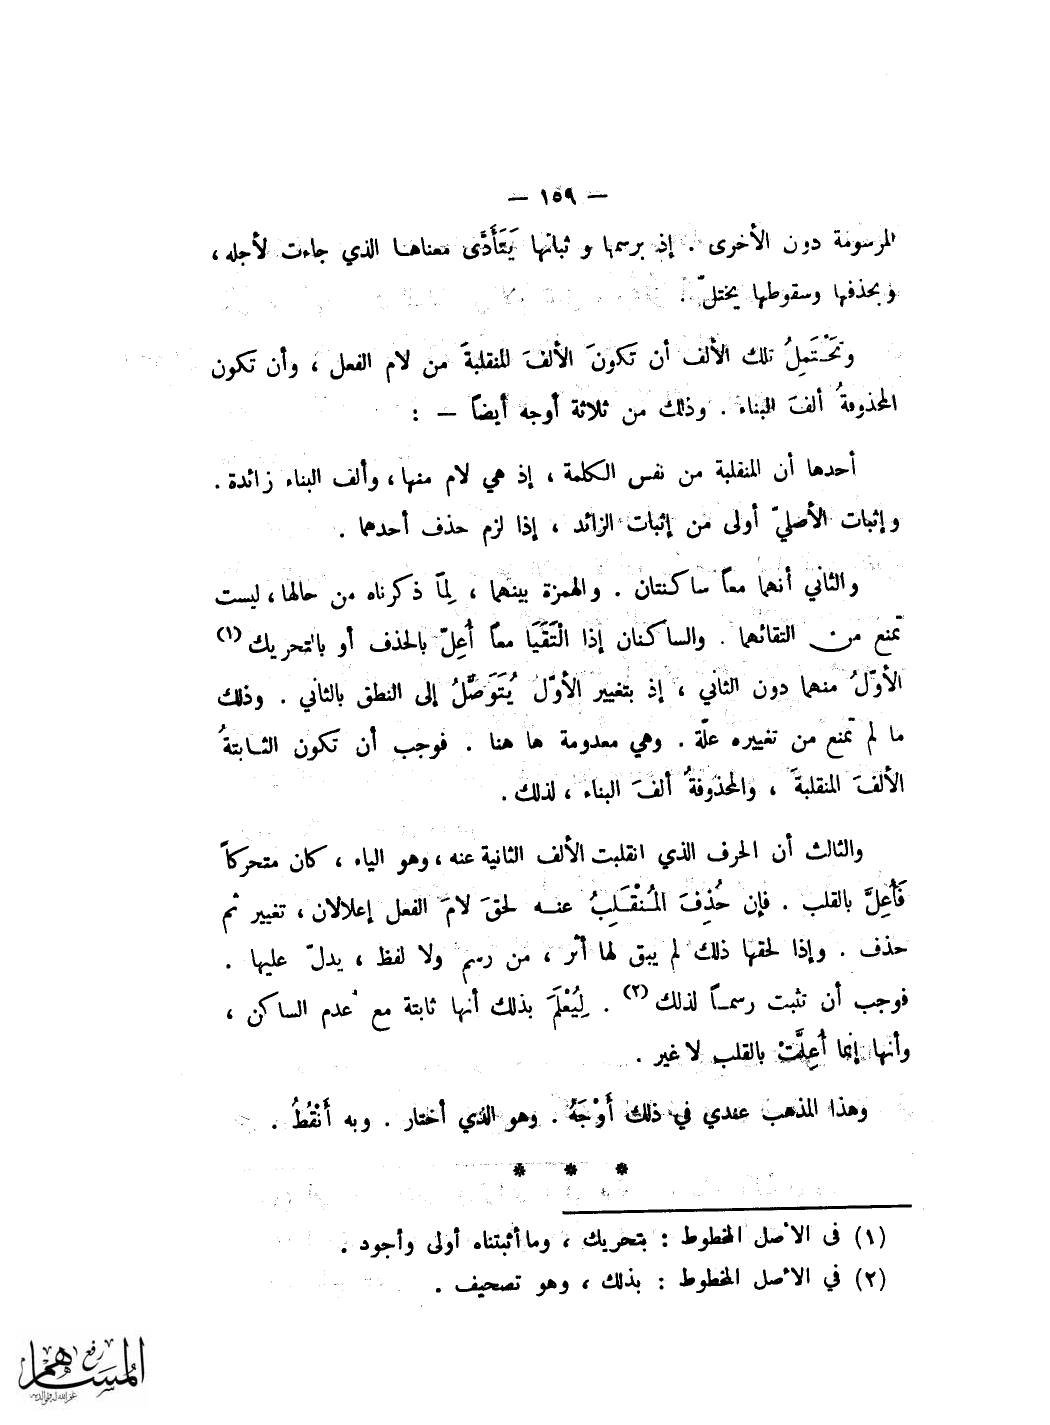 — ١٥٩ —
المرسومة دون الأخرى . إذ برسمها و ثباتها يَتَأَدَّى معناها الذي جاءت لأجله ،
وبحذفها وسقوطها يختلّ .
وتَحْتَمِلُ تلك الألف أن تكونَ الألفَ المنقلبةَ من لام الفعل ، وأن تكون
المحذوفةُ ألفَ البناء . وذلك من ثلاثة أوجه أيضاً — :
أحدها أن المنقلبة من نفس الكلمة ، إذ هي لام منها ، وألف البناء زائدة .
وإثبات الأصليّ أولى من إثبات الزائد ، إذا لزم حذف أحدهما .
والثاني أنهما معاً ساكنتان . والهمزة بينهما ، لِمَا ذكرناه من حالها ، ليست
تمنع من التقائهما . والساكنان إذا الْتَقَيَا معاً أُعِلّ بالحذف أو بالتحريك (١)
الأوّلُ منهما دون الثاني ، إذ بتغيير الأوّل يُتَوَصَّلُ إلى النطق بالثاني . وذلك
ما لم تمنع من تغييره علّة . وهي معدومة ها هنا . فوجب أن تكون الثابتةُ
الألفَ المنقلبةَ ، والمحذوفةُ ألفَ البناء ، لذلك .
والثالث أن الحرف الذي انقلبت الألف الثانية عنه ، وهو الياء ، كان متحركاً
فَأُعِلَّ بالقلب . فإن حُذِفَ المُنْقَلِبُ عنه لحقَ لامَ الفعل إعلالان ، تغيير ثم
حذف . وإذا لحقها ذلك لم يبق لها أثر ، من رسم ولا لفظ ، يدلّ عليها .
فوجب أن تثبت رسماً لذلك (٢) . لِيُعْلَمَ بذلك أنها ثابتة مع عدم الساكن ،
وأنها إنما أُعِلَّتْ بالقلب لا غير .
وهذا المذهب عندي في ذلك أَوْجَهُ . وهو الذي أختار . وبه أَنْقُطُ .
* * *
(١) في الأصل المخطوط : بتحريك ، وما أثبتناه أولى وأجود .
(٢) في الأصل المخطوط : بذلك ، وهو تصحيف .
رفع
المساهم